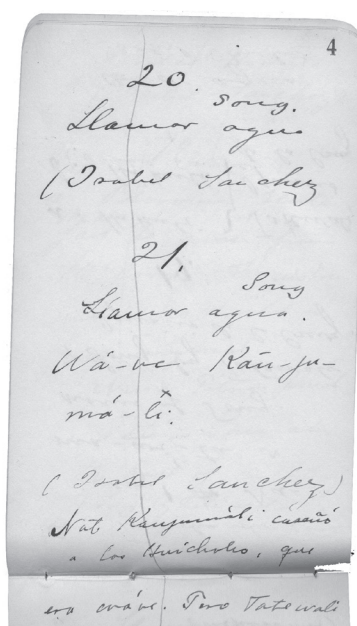 4
20.
Song.
Llamar agua
(Isabel Sanchez
21.
Song
Llamar agua.
Wá-ve Káu-yu-
má-li.
(Isabel Sanchez)
Not Kauyumáli enseñó
a los Huicholes, que
era wáve. Pero Tatewali